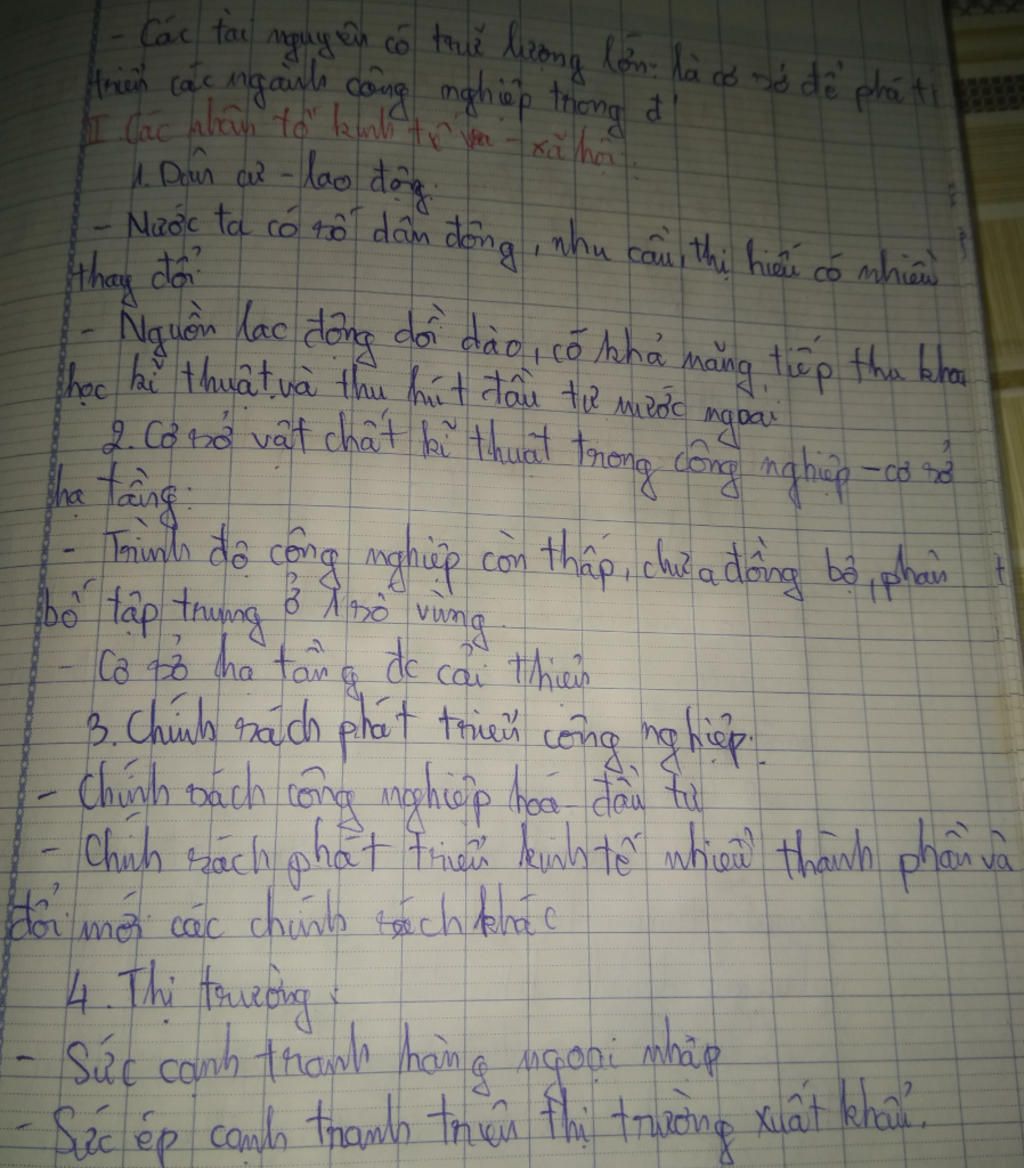 - Các tài nguyên có trữ lượng lớn: là cơ sở để phát
triển các ngành công nghiệp trọng đ'
II Các nhân tố kinh tế - xã hội.
1. Dân cư - lao động.
- Nước ta có số dân đông, nhu cầu, thị hiếu có nhiều
thay đổi.
- Nguồn lao động dồi dào, có khả năng tiếp thu khoa
học kĩ thuật, và thu hút đầu tư nước ngoài
2. Cơ sở vật chất kĩ thuật trong công nghiệp - cơ sở
hạ tầng:
- Trình độ công nghiệp còn thấp, chưa đồng bộ, phân
bố tập trung ở 1 số vùng.
- Cơ sở hạ tầng đc cải thiện
3. Chính sách phát triển công nghiệp.
- Chính sách công nghiệp hoá - đầu tư
- Chính sách phát triển kinh tế nhiều thành phần và
đổi mới các chính sách khác
4. Thị trường:
- Sức cạnh tranh hàng ngoại nhập
- Sức ép cạnh tranh trên thị trường xuất khẩu.